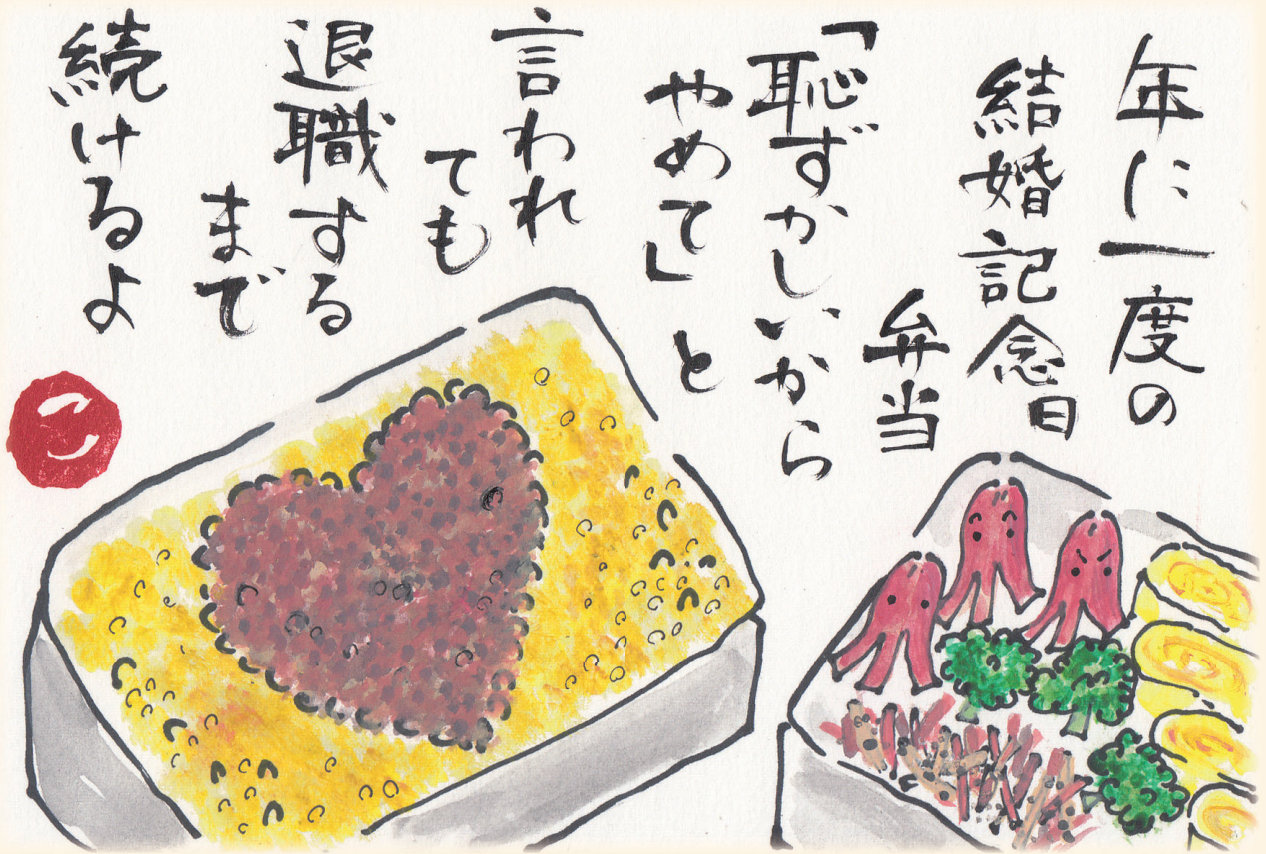 年に一度の
結婚記念日
弁当
「恥ずかしいから
やめて」と
言われ
ても
退職する
まで
続けるよ
こ